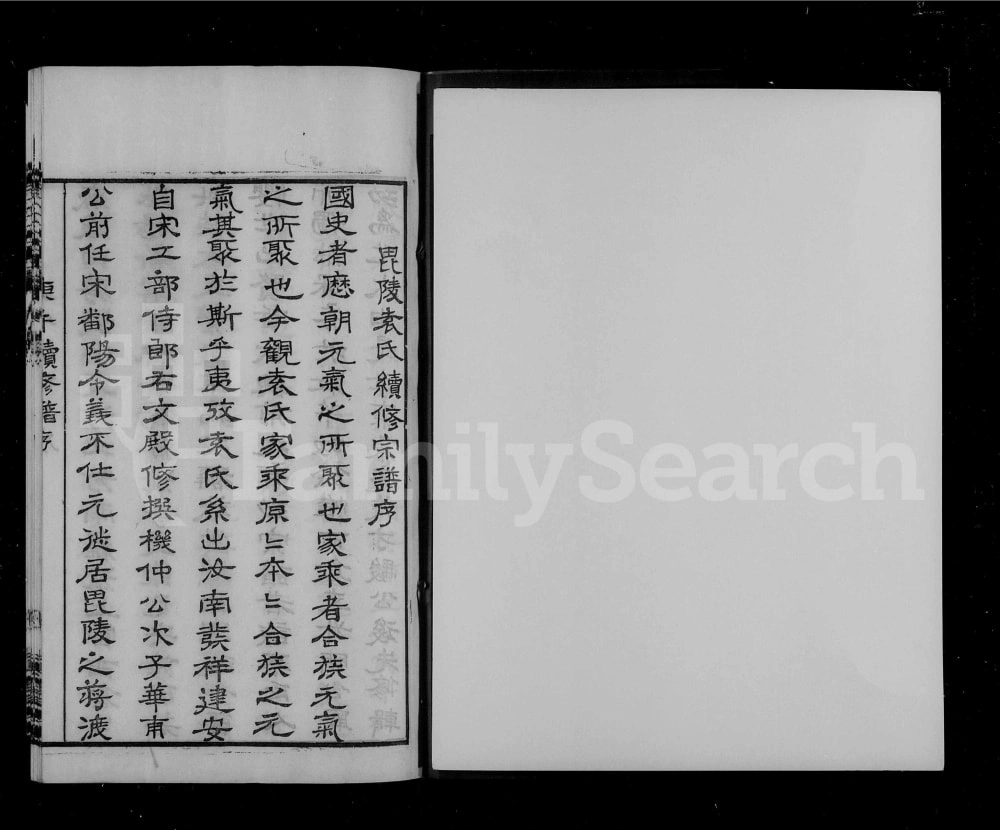 毘陵袁氏續修宗譜序
國史者歷朝元氣之所聚也家乘者合族元氣
之所聚也今觀袁氏家乘原〻本〻合族之元
氣其聚於斯乎夷攷袁氏系出汝南發祥建安
自宋工部侍郎右文殿修撰機仲公次子華甫
公前任宋鄱陽令義不仕元遊居毘陵之蔣渡
庚午續修譜序
FamilySearch